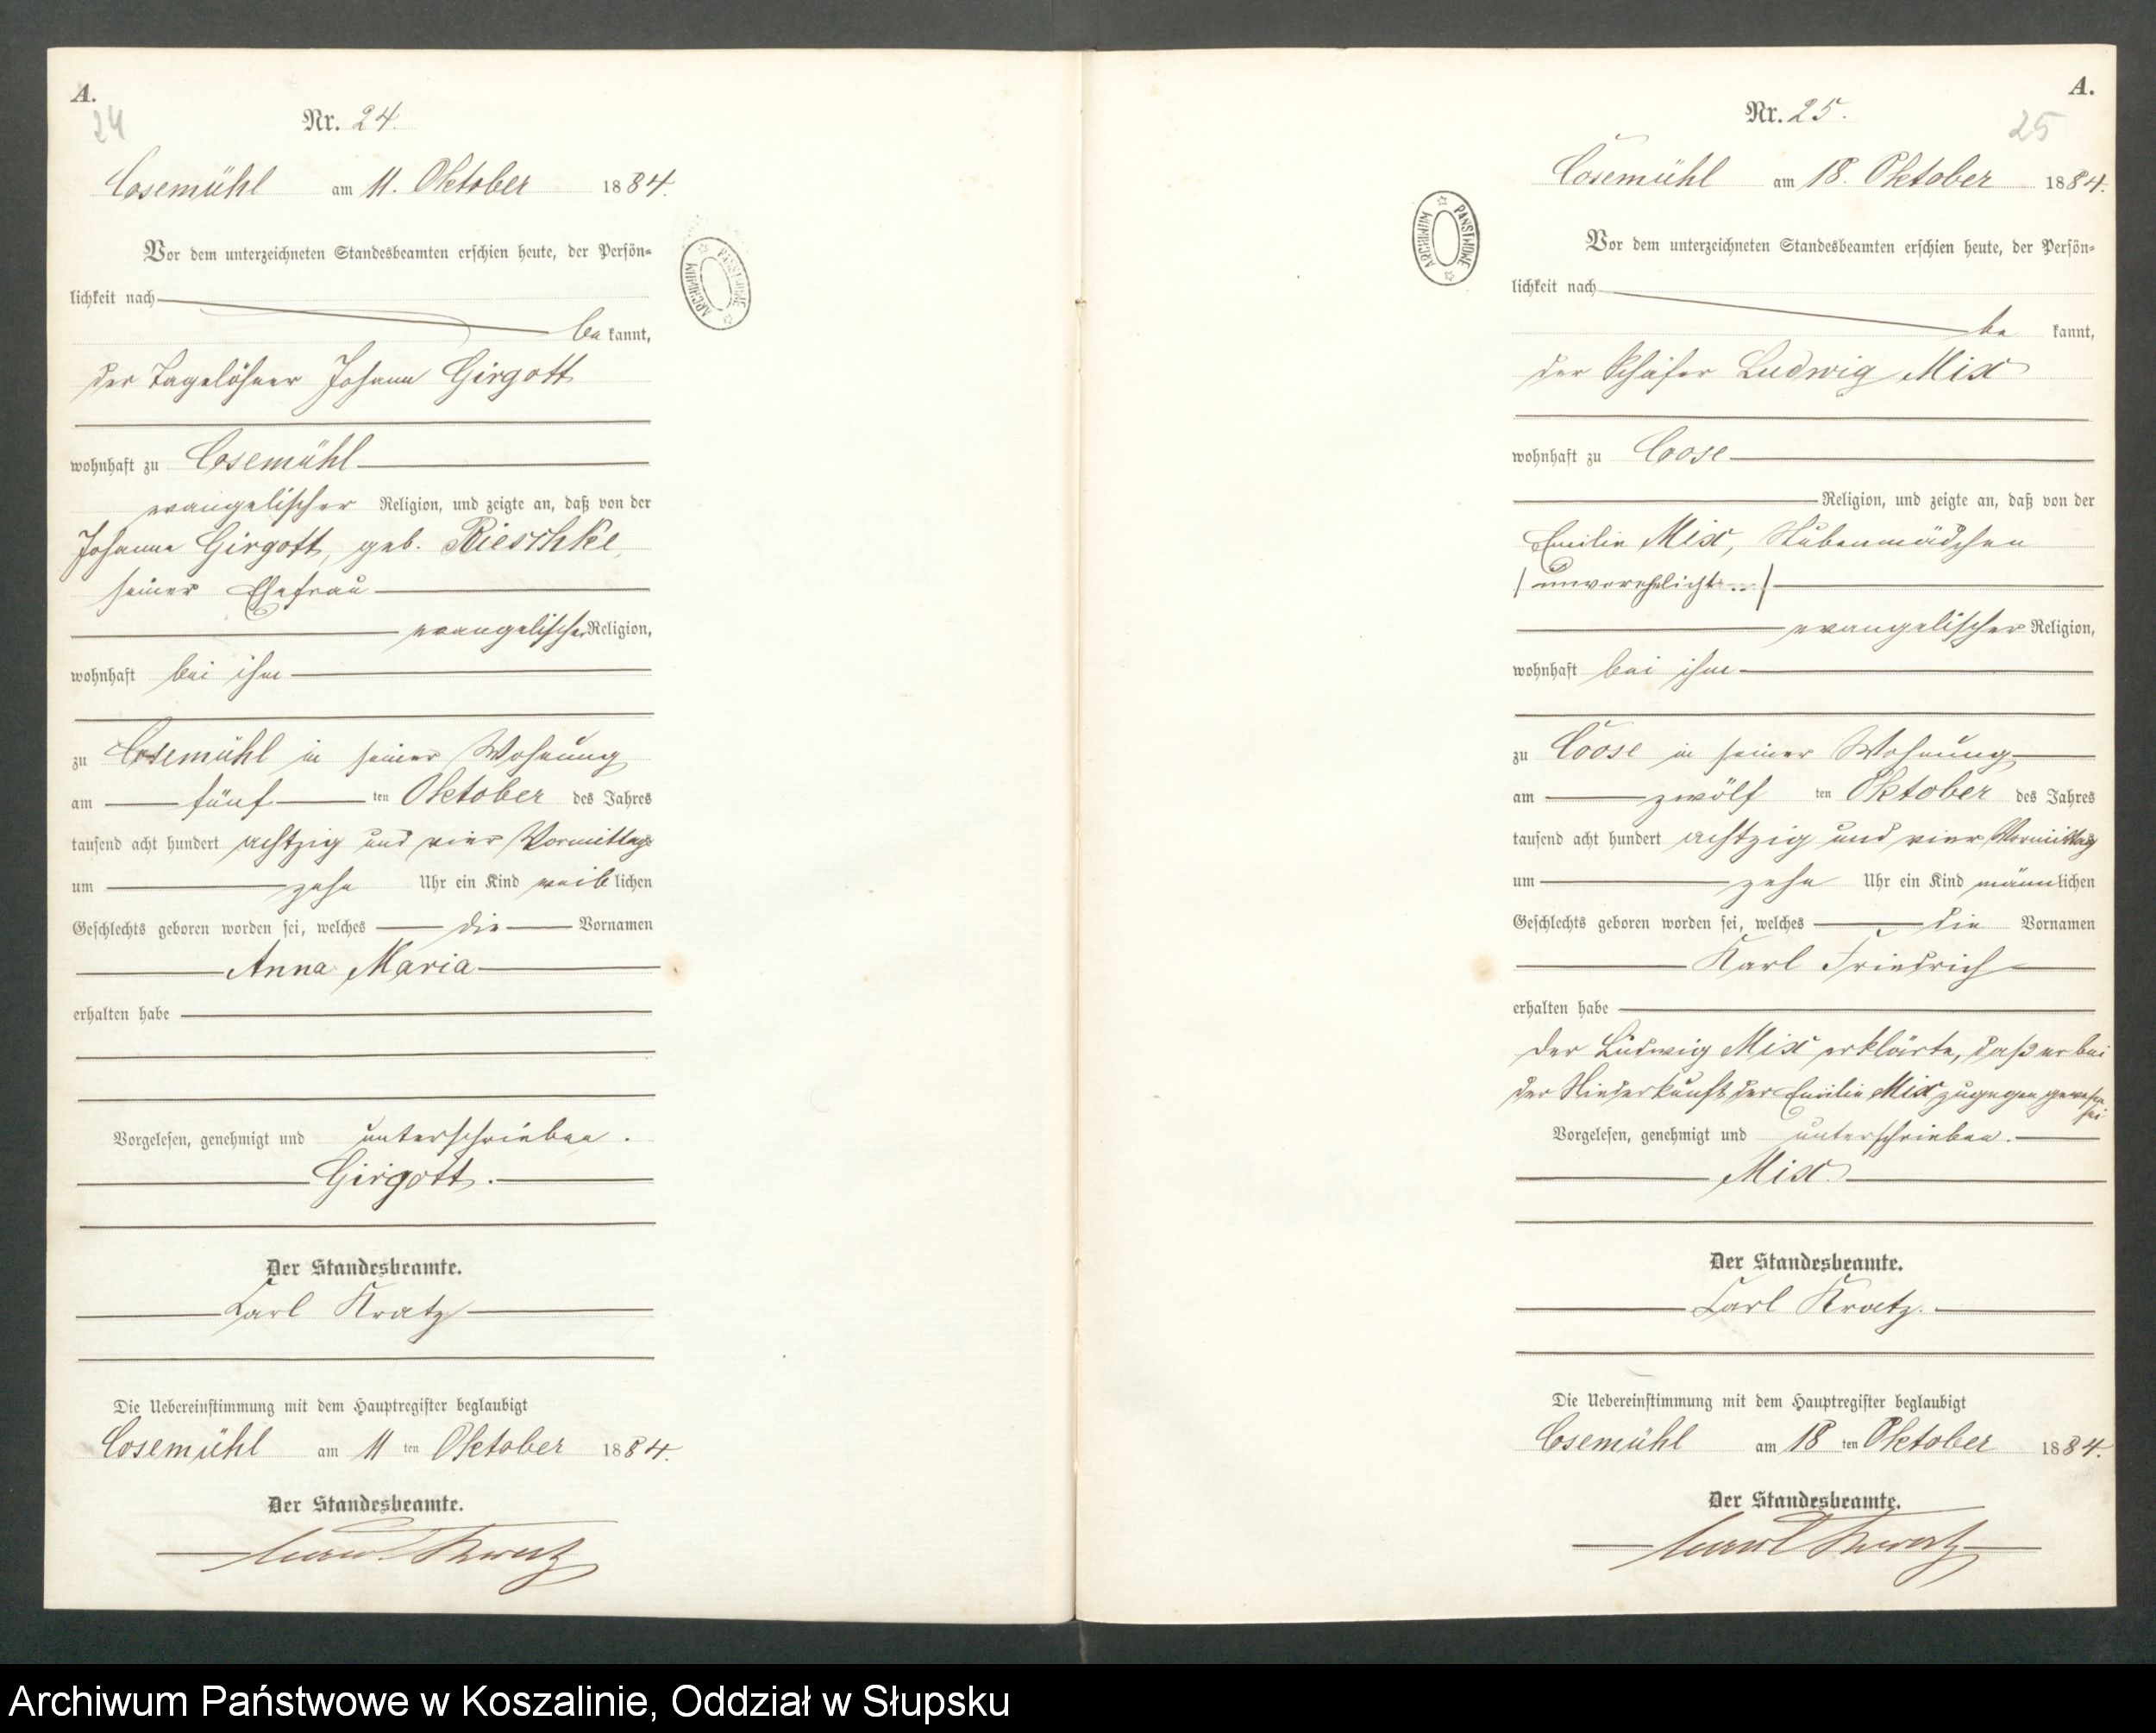 A.
24
Nr. 24.
Cosemühl am 11. Oktober 1884.
Vor dem unterzeichneten Standesbeamten erschien heute, der Persön-
lichkeit nach
be kannt,
der Tagelöhner Johann Girgott
wohnhaft zu Cosemühl
evangelischer Religion, und zeigte an, daß von der
Johanna Girgott, geb. Rieschke,
seiner Ehefrau
evangelischer Religion,
wohnhaft bei ihm
zu Cosemühl in seiner Wohnung
am fünf ten Oktober des Jahres
tausend acht hundert achtzig und vier Vormittags
um zehn Uhr ein Kind weib lichen
Geschlechts geboren worden sei, welches die Vornamen
Anna Maria
erhalten habe
Vorgelesen, genehmigt und unterschrieben.
Girgott.
Der Standesbeamte.
Carl Kratz
Die Uebereinstimmung mit dem Hauptregister beglaubigt
Cosemühl am 11 ten Oktober 1884.
Der Standesbeamte.
Carl Kratz
ARCHIWUM PAŃSTWOWE
A.
25
Nr. 25.
Cosemühl am 18. Oktober 1884.
Vor dem unterzeichneten Standesbeamten erschien heute, der Persön-
lichkeit nach
be kannt,
der Schäfer Ludwig Mix
wohnhaft zu Coose
Religion, und zeigte an, daß von der
Emilie Mix, Stubenmädchen
/ unverehelicht /
evangelischer Religion,
wohnhaft bei ihm
zu Coose in seiner Wohnung
am zwölf ten Oktober des Jahres
tausend acht hundert achtzig und vier Vormittag
um zehn Uhr ein Kind männ lichen
Geschlechts geboren worden sei, welches die Vornamen
Karl Friedrich
erhalten habe
Der Ludwig Mix erklärte, daß er bei
der Niederkunft der Emilie Mix zugegen gewesen
sei
Vorgelesen, genehmigt und unterschrieben.
Mix.
Der Standesbeamte.
Carl Kratz.
Die Uebereinstimmung mit dem Hauptregister beglaubigt
Cosemühl am 18 ten Oktober 1884.
Der Standesbeamte.
Carl Kratz
ARCHIWUM PAŃSTWOWE
Archiwum Państwowe w Koszalinie, Oddział w Słupsku